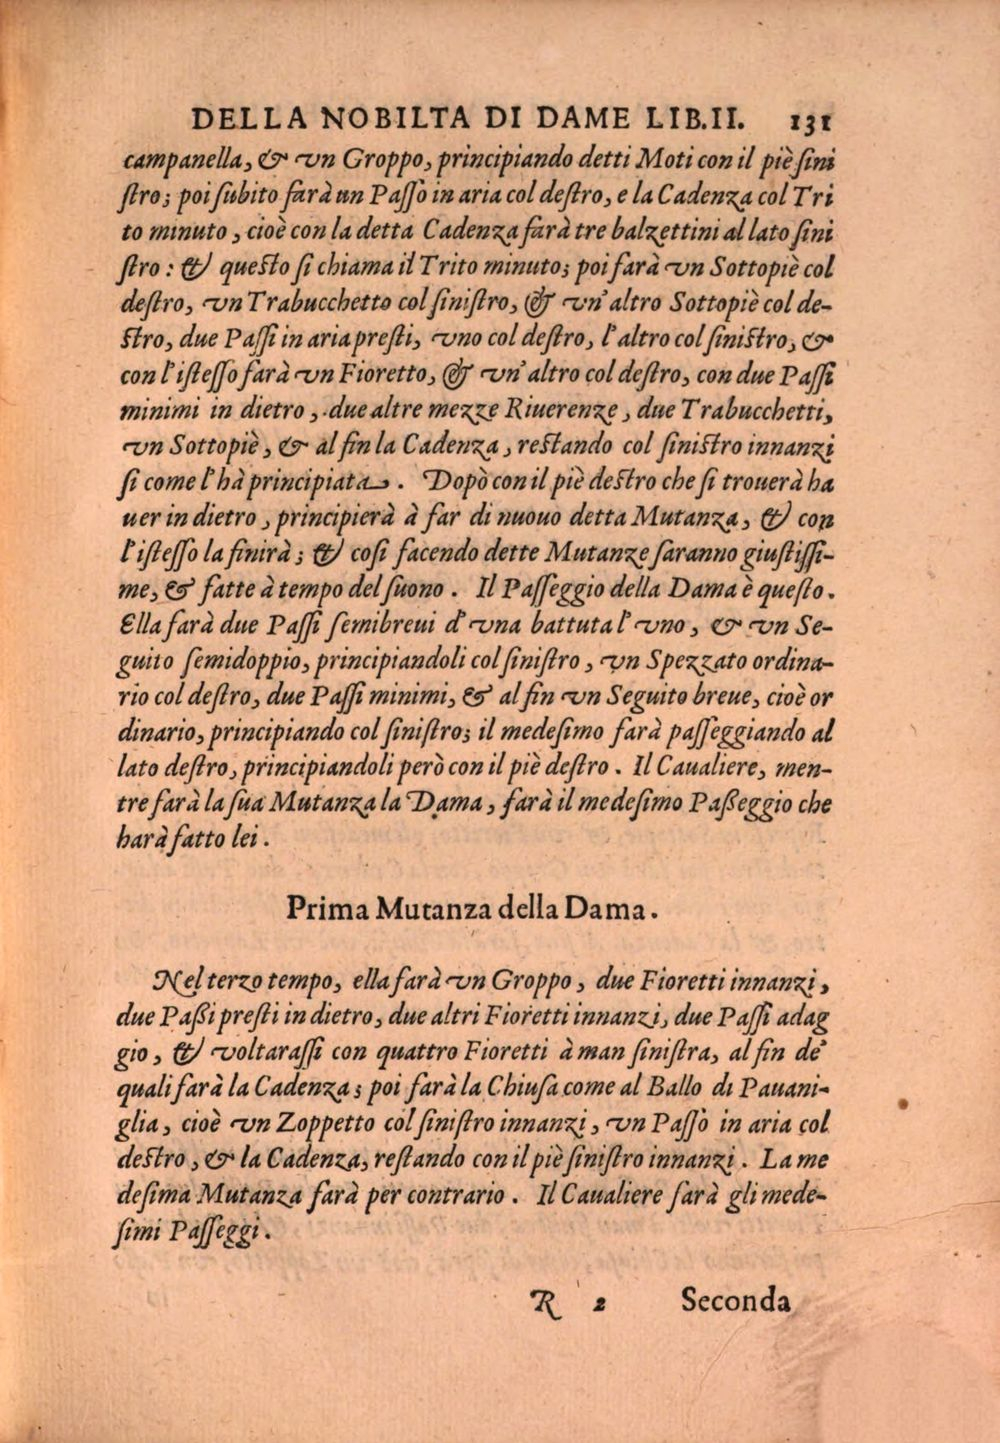 DELLA NOBILTA DI DAME LIB.II. 131
campanella, & vn Groppo, principiando detti Moti con il piè ſini
ſtro; poi ſubito farà un Paſſo in aria col deſtro, e la Cadenza col Tri
to minuto, cioè con la detta Cadenza farà tre balzettini al lato ſini
ſtro: & queſto ſi chiama il Trito minuto; poi farà vn Sottopiè col
deſtro, vn Trabucchetto col ſiniſtro, & vn'altro Sottopiè col de-
ſtro, due Paſſi in aria preſti, vno col deſtro, l'altro col ſiniſtro, &
con l'iſteſſo farà vn Fioretto, & vn'altro col deſtro, con due Paſſi
minimi in dietro, due altre mezze Riuerenze, due Trabucchetti,
vn Sottopiè, & al fin la Cadenza, reſtando col ſiniſtro innanzi
ſi come l'hà principiata. Dopò con il piè deſtro che ſi trouerà ha
uer in dietro, principierà à far di nuouo detta Mutanza, & con
l'iſteſſo la finirà; & coſi facendo dette Mutanze ſaranno giuſtiſſi-
me, & fatte à tempo del ſuono. Il Paſſeggio della Dama è queſto.
Ella farà due Paſſi ſemibreui d'vna battuta l'vno, & vn Se-
guito ſemidoppio, principiandoli col ſiniſtro, vn Spezzato ordina-
rio col deſtro, due Paſſi minimi, & al fin vn Seguito breue, cioè or
dinario, principiando col ſiniſtro; il medeſimo farà paſſeggiando al
lato deſtro, principiandoli però con il piè deſtro. Il Caualiere, men-
tre farà la ſua Mutanza la Dama, farà il medeſimo Paßeggio che
harà fatto lei.
Prima Mutanza della Dama.
Nel terzo tempo, ella farà vn Groppo, due Fioretti innanzi,
due Paßi preſti in dietro, due altri Fioretti innanzi, due Paſſi adag
gio, & voltaraſſi con quattro Fioretti à man ſiniſtra, al fin de'
quali farà la Cadenza; poi farà la Chiuſa come al Ballo di Pauani-
glia, cioè vn Zoppetto col ſiniſtro innanzi, vn Paſſo in aria col
deſtro, & la Cadenza, reſtando con il piè ſiniſtro innanzi. La me
deſima Mutanza farà per contrario. Il Caualiere farà gli mede-
ſimi Paſſeggi.
R 2 Seconda